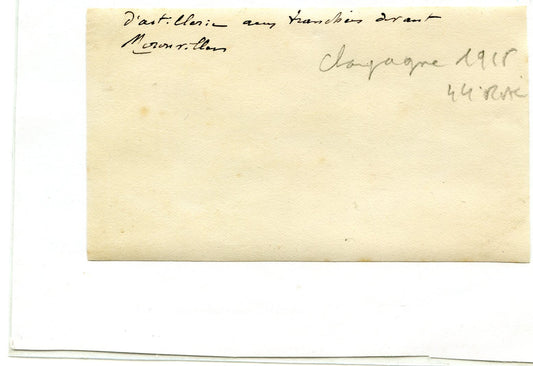 d'artillerie aux tranchées devant
Moronvillers
Champagne 1915
44